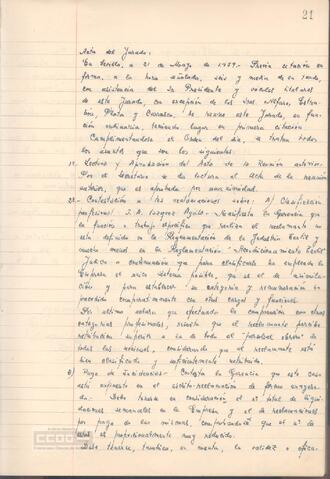 21
Acta del Jurado:
En Sevilla, a 21 de Marzo de 1959.- Previa citación en
forma, a la hora señalada, seis y media de la tarde,
con asistencia del Sr. Presidente y vocales titulares
de este Jurado, con excepción de los Sres.
Plata y Carrasco, se reune este Jurado, en su
función ordinaria, teniendo lugar en primera citación
Cumplimentándose el Orden del día, se tratan todos
los asuntos que son los siguientes:
1º.- Lectura y Aprobación del Acta de la Reunión anterior.
Por el Secretario se da lectura al Acta de la reunión
anterior, que es aprobada por unanimidad.
2º.- Contestación a las reclamaciones sobre: A) Clasificación
profesional: J. A. Vazquez Manifiesta la Gerencia que
la función o trabajo específico que realiza el reclamante no
está definido en la Reglamentación de la Industria Textil y
la Reglamentación Nomenclátor
a continuación que para clasificarlo ha empleado la
Empresa el único sistema posible, que es el de asimila-
ción y para establecer su categoría y remuneración ha
procedido comparativamente con otros cargos y funciones.
Por último aclara que efectuando la comparación con otras
categorías profesionales, resulta que el reclamante percibe
retribución superior a la de todo el personal obrero de
todas las secciones, considerando que el reclamante está
bien clasificado y suficientemente retribuido.
B) Pago de Incidencias:- Contesta la Gerencia que este caso
está expuesto en el escrito-reclamación de forma exagera-
da. Debe tenerse en consideración el nº total de liqui-
daciones semanales en la Empresa y el de reclamaciones
por pago de las mismas, comprobándose que el nº de
estas es proporcionalmente muy reducido.
Debe tenerse, también, en cuenta, la validez o efica-
CCOO